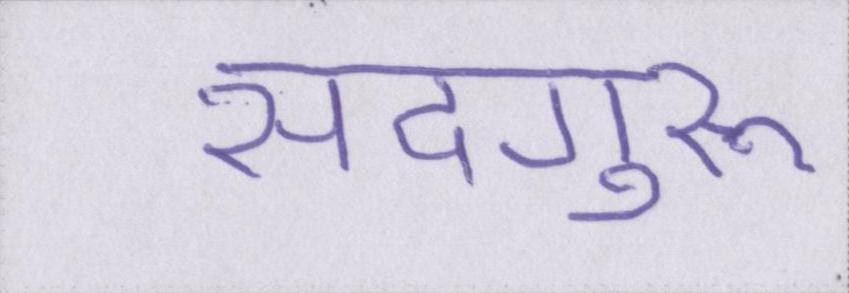 सदगुरू